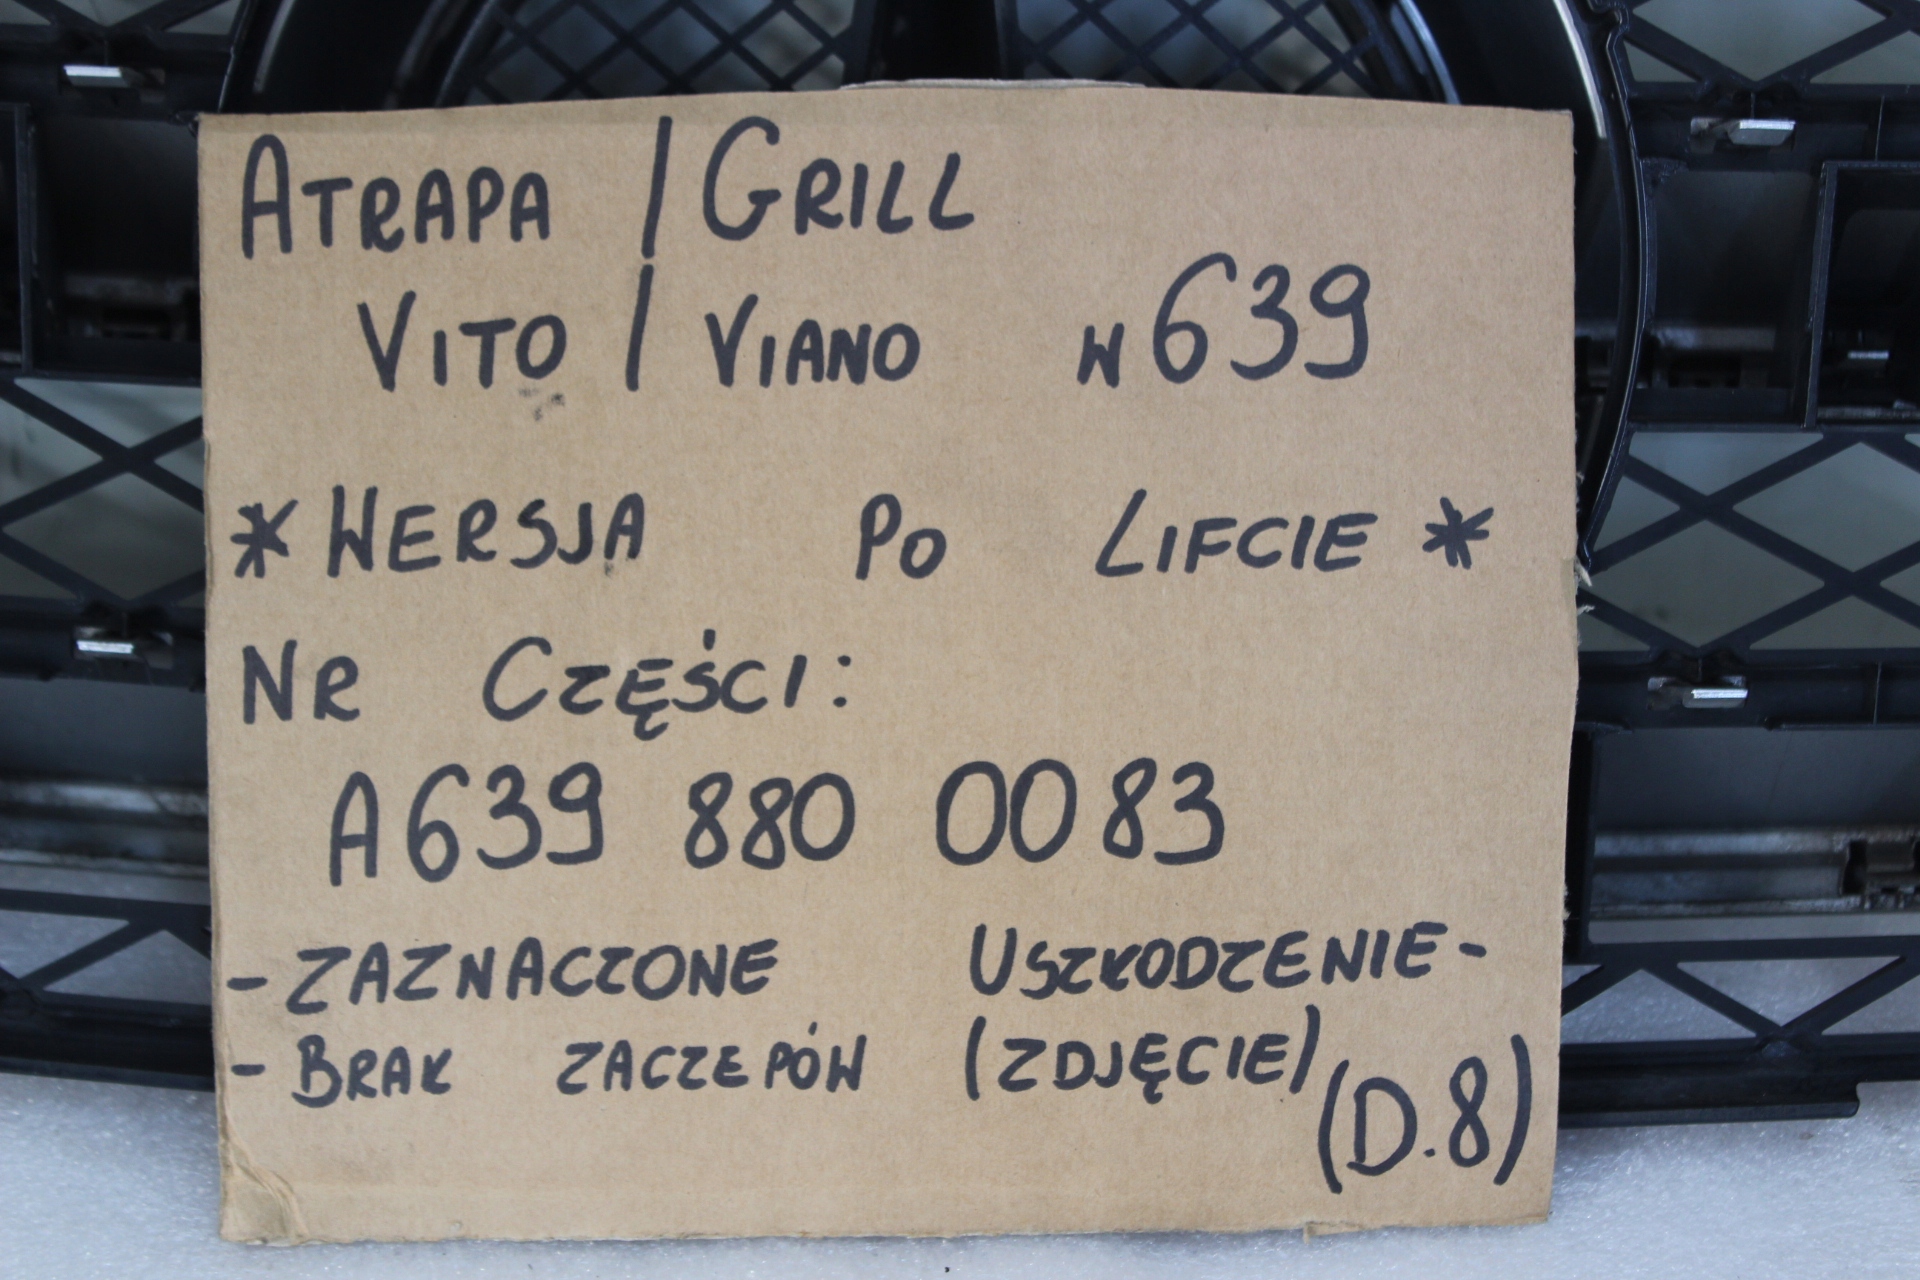 ATRAPA / GRILL
VITO / VIANO W639
* WERSJA PO LIFCIE *
NR CZĘŚCI:
A639 880 0083
- ZAZNACZONE USZKODZENIE -
- BRAK ZACZEPÓW (ZDJĘCIE)
(D.8)